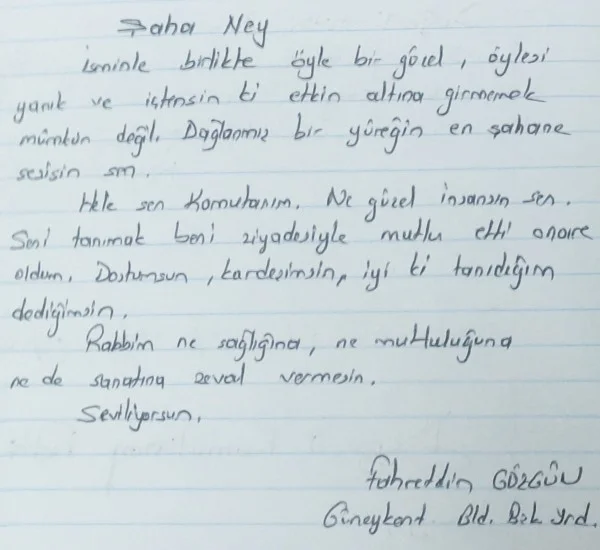 Şaha Ney
İsminle birlikte öyle bir güzel, öylesi
yanık ve içtensin ki etkin altına girmemek
mümkün değil. Dağlanmış bir yüreğin en şahane
sesisin sen.
Hele sen Komutanım. Ne güzel insansın sen.
Seni tanımak beni ziyadesiyle mutlu etti onore
oldum. Dostumsun, kardeşimsin, iyi ki tanıdığım
dediğimsin.
Rabbim ne sağlığına, ne mutluluğuna
ne de sanatına zeval vermesin.
Seviliyorsun.
Fahreddin GÖZGÜN
Güneykent Bld. Bşk. Yrd.